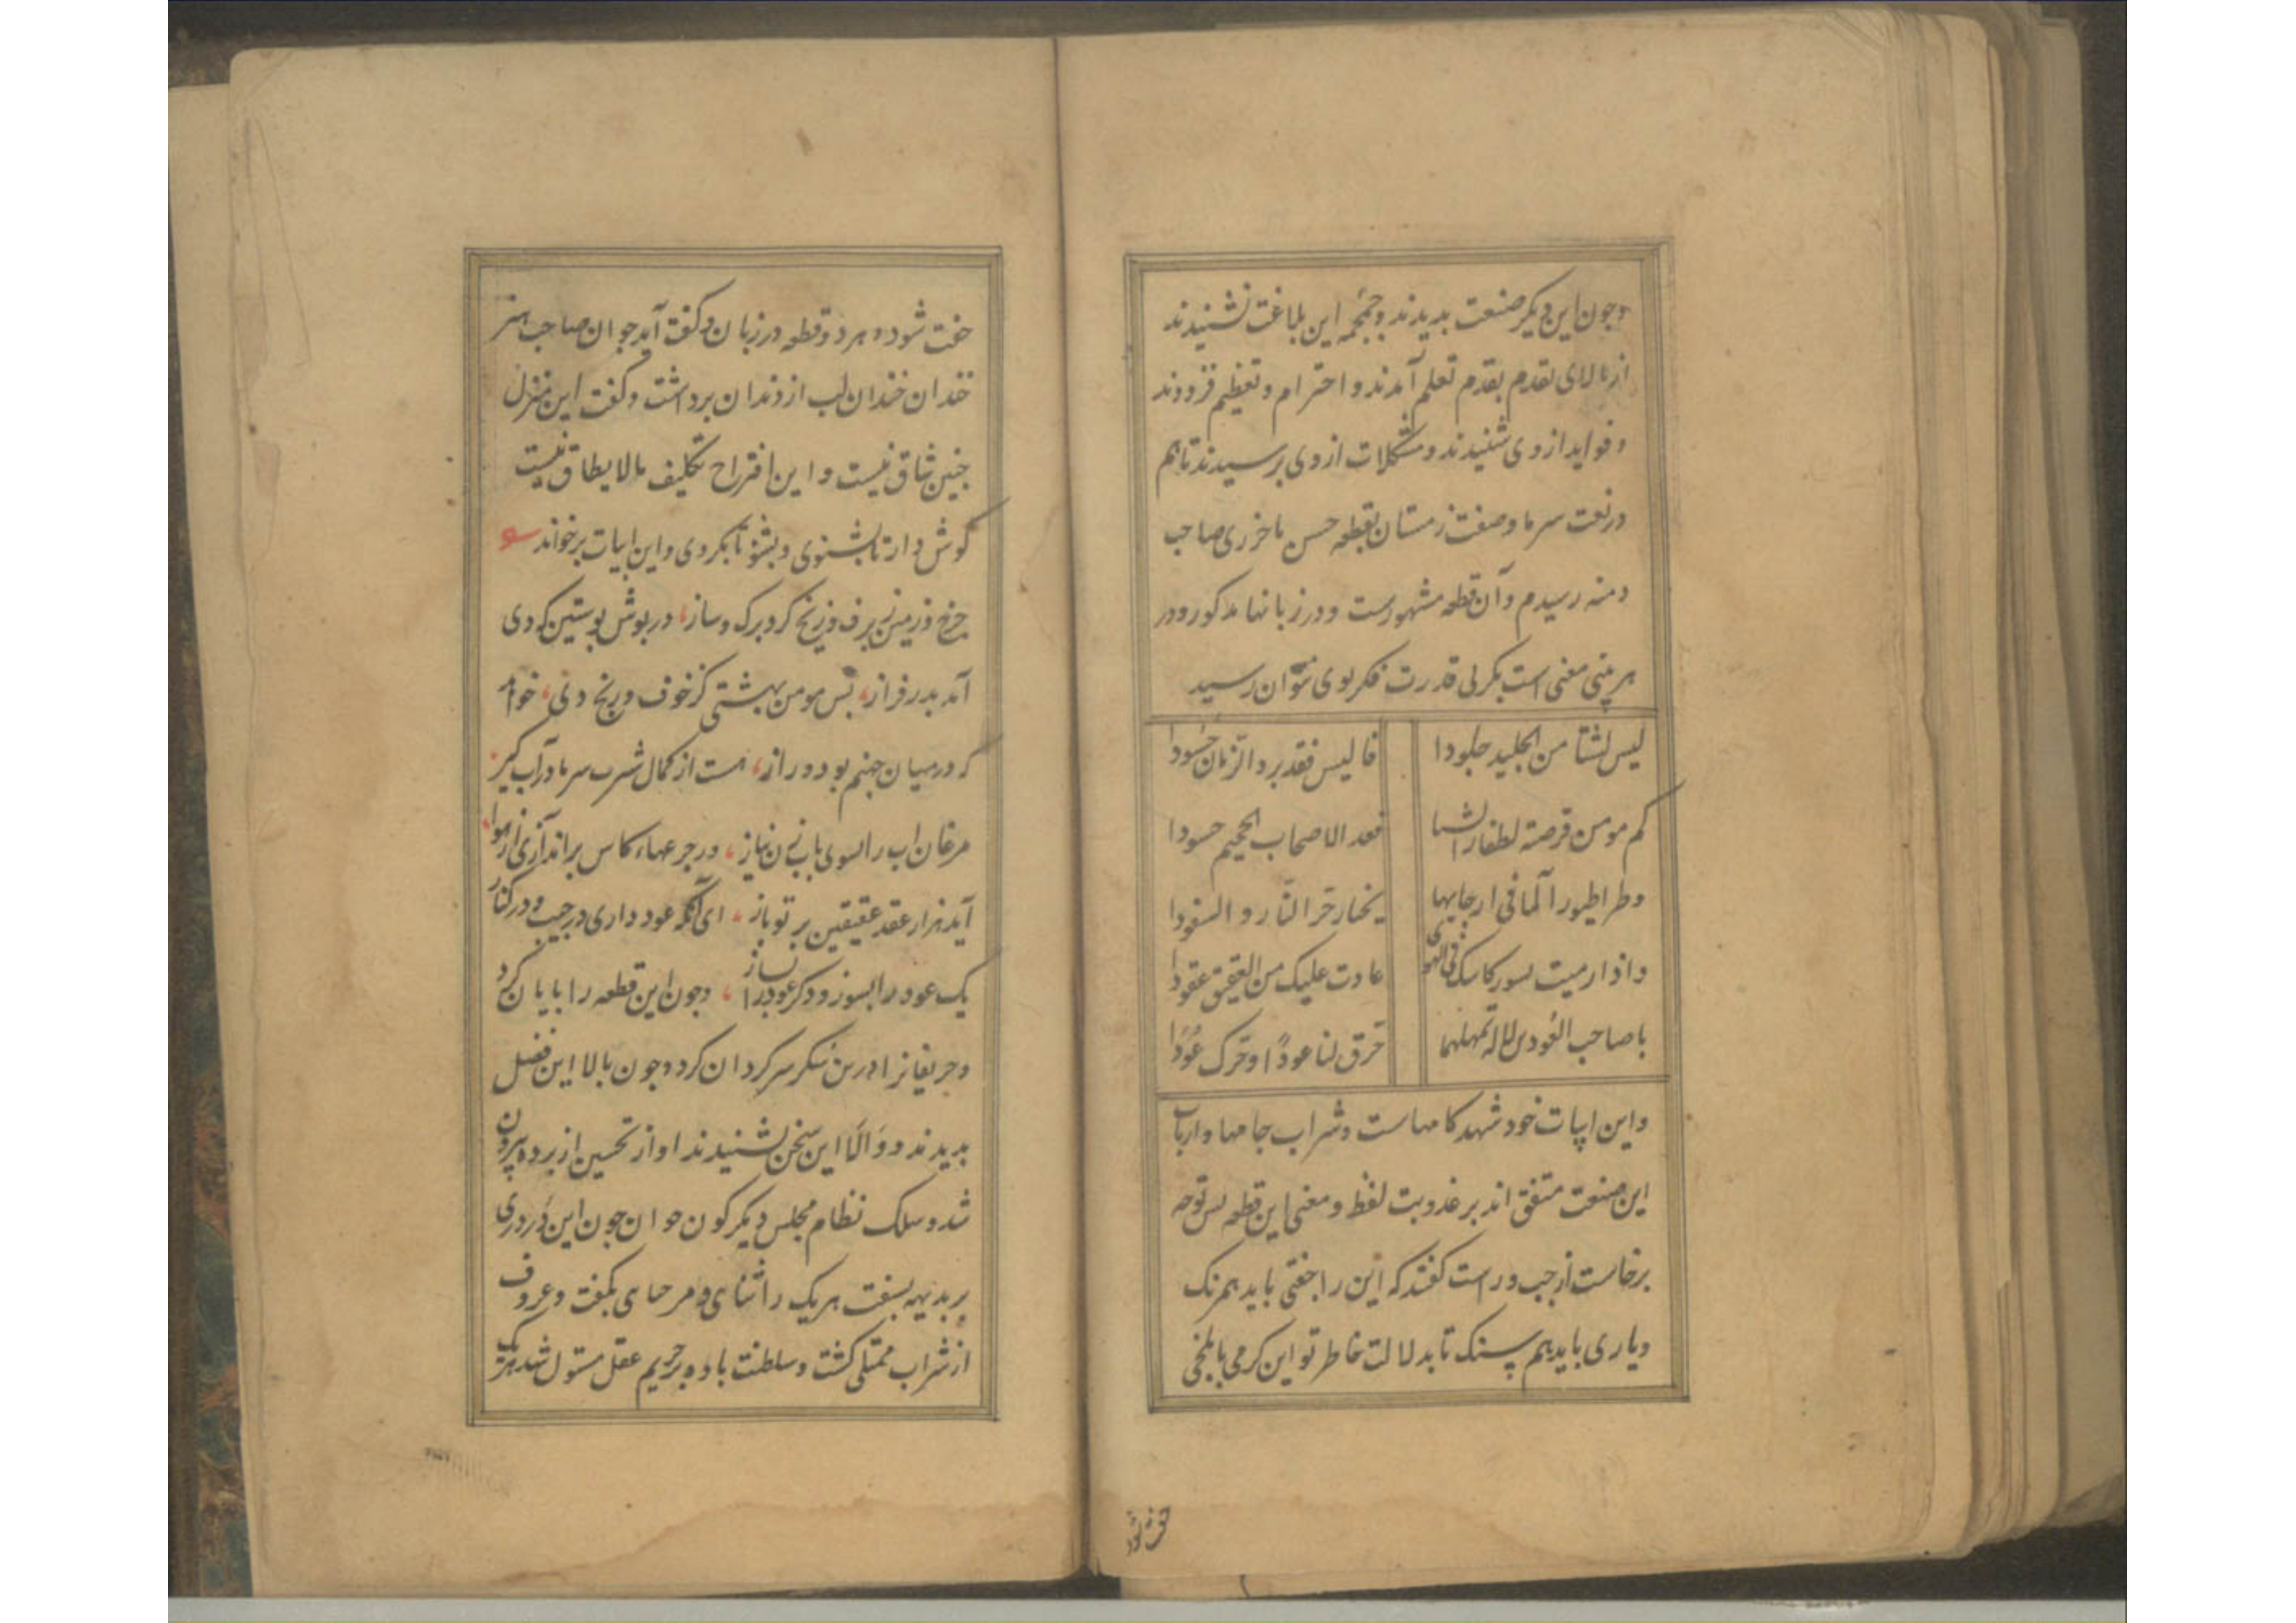 وچون این دیگر صنعت بدیدند و جمجمه این بلاغت بشنیدند
از بالای تقدم بقدم تعلم آمدند و احترام و تعظیم فزودند
و فواید از وی شنیدند و مشکلات از وی برسیدند تا هم
در نعت سرما و صفت زمستان بقطعه حسن باخرزی صاحب
دمنه رسیدم و آن قطعه مشهورست و در زبانها مذکور و در
هر بیتی معنی است بکر بی قدرت فکر بوی نتوان رسید
لیس لشتا من الجلید جلودا
فالیس فقد برد الزمان
کم مومن قرصته لظفار الشتا
فغدا لاصحاب الجحیم حسودا
وطرا طیور الما فی ارجایها
یختار حر النار و السفودا
و اذا رمیت بسور کاسک فی الهوی
عادت علیک من العقیق عقودا
یا صاحب العودین لا تهملهما
حرق لنا عودا و حرک عودا
و این ابیات خود شهد کامهاست و شراب جامها و ارباب
این صنعت متفق اند بر عذوبت لفظ و معنی این قطعه بس توجه
برخاست از جب و راست گفتند که این را جفتی باید همرنک
و یاری باید هم سنک تا بدلالت خاطر تو این کرمی با بلخی
جفت شود
جفت شود و هر دو قطعه در زبان و گفت آید جوان صاحب هنر
خندان خندان لب از دندان برداشت و گفت این منزل
جنین شاق نیست و این اقتراح تکلیف مالایطاق نیست
گوش دار تا بشنوی و بشنو تا بگروی و این ابیات برخواند
جرخ و زمین ز برف و ز یخ کرد برک و ساز، در بوش بوستین که دی
آمد بدر فراز، بس مومن بهشتی کز خوف و رنج دی، خواهد
که در میان جهنم بود دراز، هست از کمال شرب سرما در آب گیر
مرغان اب را بسوی بابزن نیاز، ور جرعهاء کاس براندازی از هوا،
آید هزار عقد عقیقین بر تو باز، ای آنکه عود داری در جیب و در کنار
یک عود را بسوز و دگر عود را بساز، و جون این قطعه را بایان کرد
و حریفانرا درین سکر سرکردان کرد و جون بالا این فضل
بدیدند و والا این سخن بشنیدند اواز تحسین از برده بیرون
شد و سلک نظام مجلس دیگر گون جوان جون این در دری
بر بدیهه بسفت هر یک را ثنای و مرحبای بگفت و عروق
از شراب ممتلی گشت و سلطنت باده بر حریم عقل مستولی شد هریک